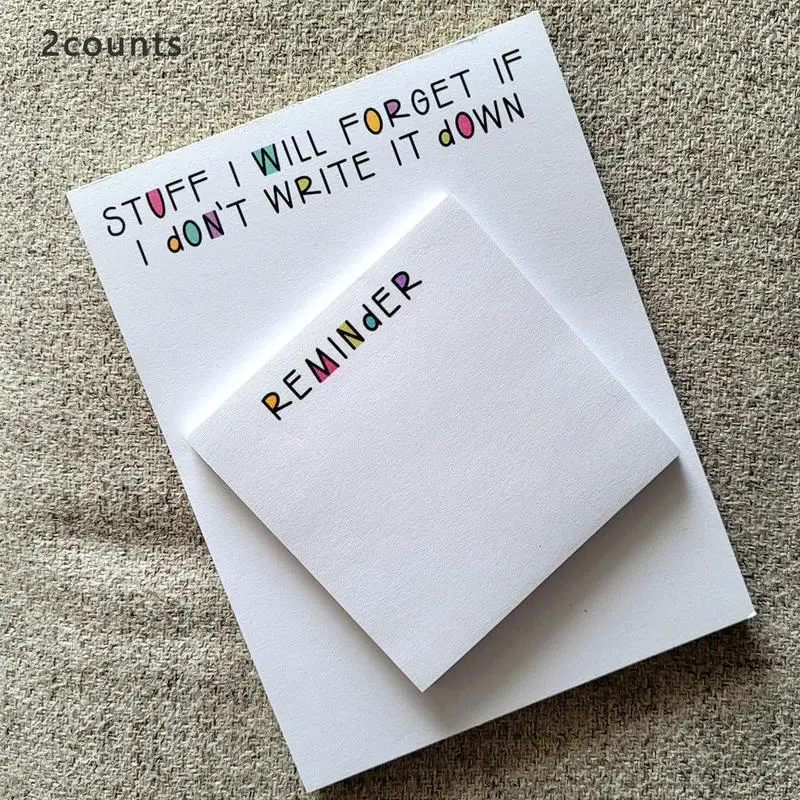 2counts
STUFF I WILL FORGET IF
I dON'T WRITE IT dOWN
REMINdER